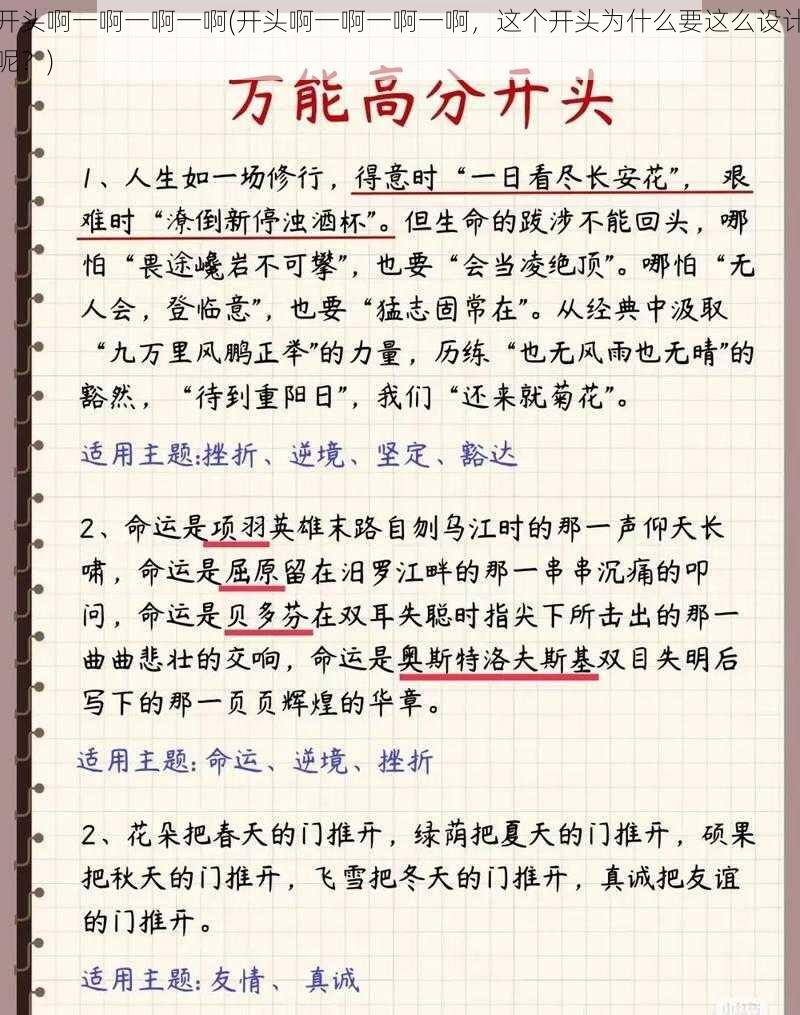 开头啊一啊一啊一啊(开头啊一啊一啊一啊，这个开头为什么要这么设计
呢？)
万能高分开头
1、人生如一场修行，得意时“一日看尽长安花”，艰
难时“潦倒新停浊酒杯”。但生命的跋涉不能回头，哪
怕“畏途巉岩不可攀”，也要“会当凌绝顶”。哪怕“无
人会，登临意”，也要“猛志固常在”。从经典中汲取
“九万里风鹏正举”的力量，历练“也无风雨也无晴”的
豁然，“待到重阳日”，我们“还来就菊花”。
适用主题:挫折、逆境、坚定、豁达
2、命运是项羽英雄末路自刎乌江时的那一声仰天长
啸，命运是屈原留在汨罗江畔的那一串串沉痛的叩
问，命运是贝多芬在双耳失聪时指尖下所击出的那一
曲曲悲壮的交响，命运是奥斯特洛夫斯基双目失明后
写下的那一页页辉煌的华章。
适用主题:命运、逆境、挫折
2、花朵把春天的门推开，绿荫把夏天的门推开，硕果
把秋天的门推开，飞雪把冬天的门推开，真诚把友谊
的门推开。
适用主题:友情、真诚
小红书